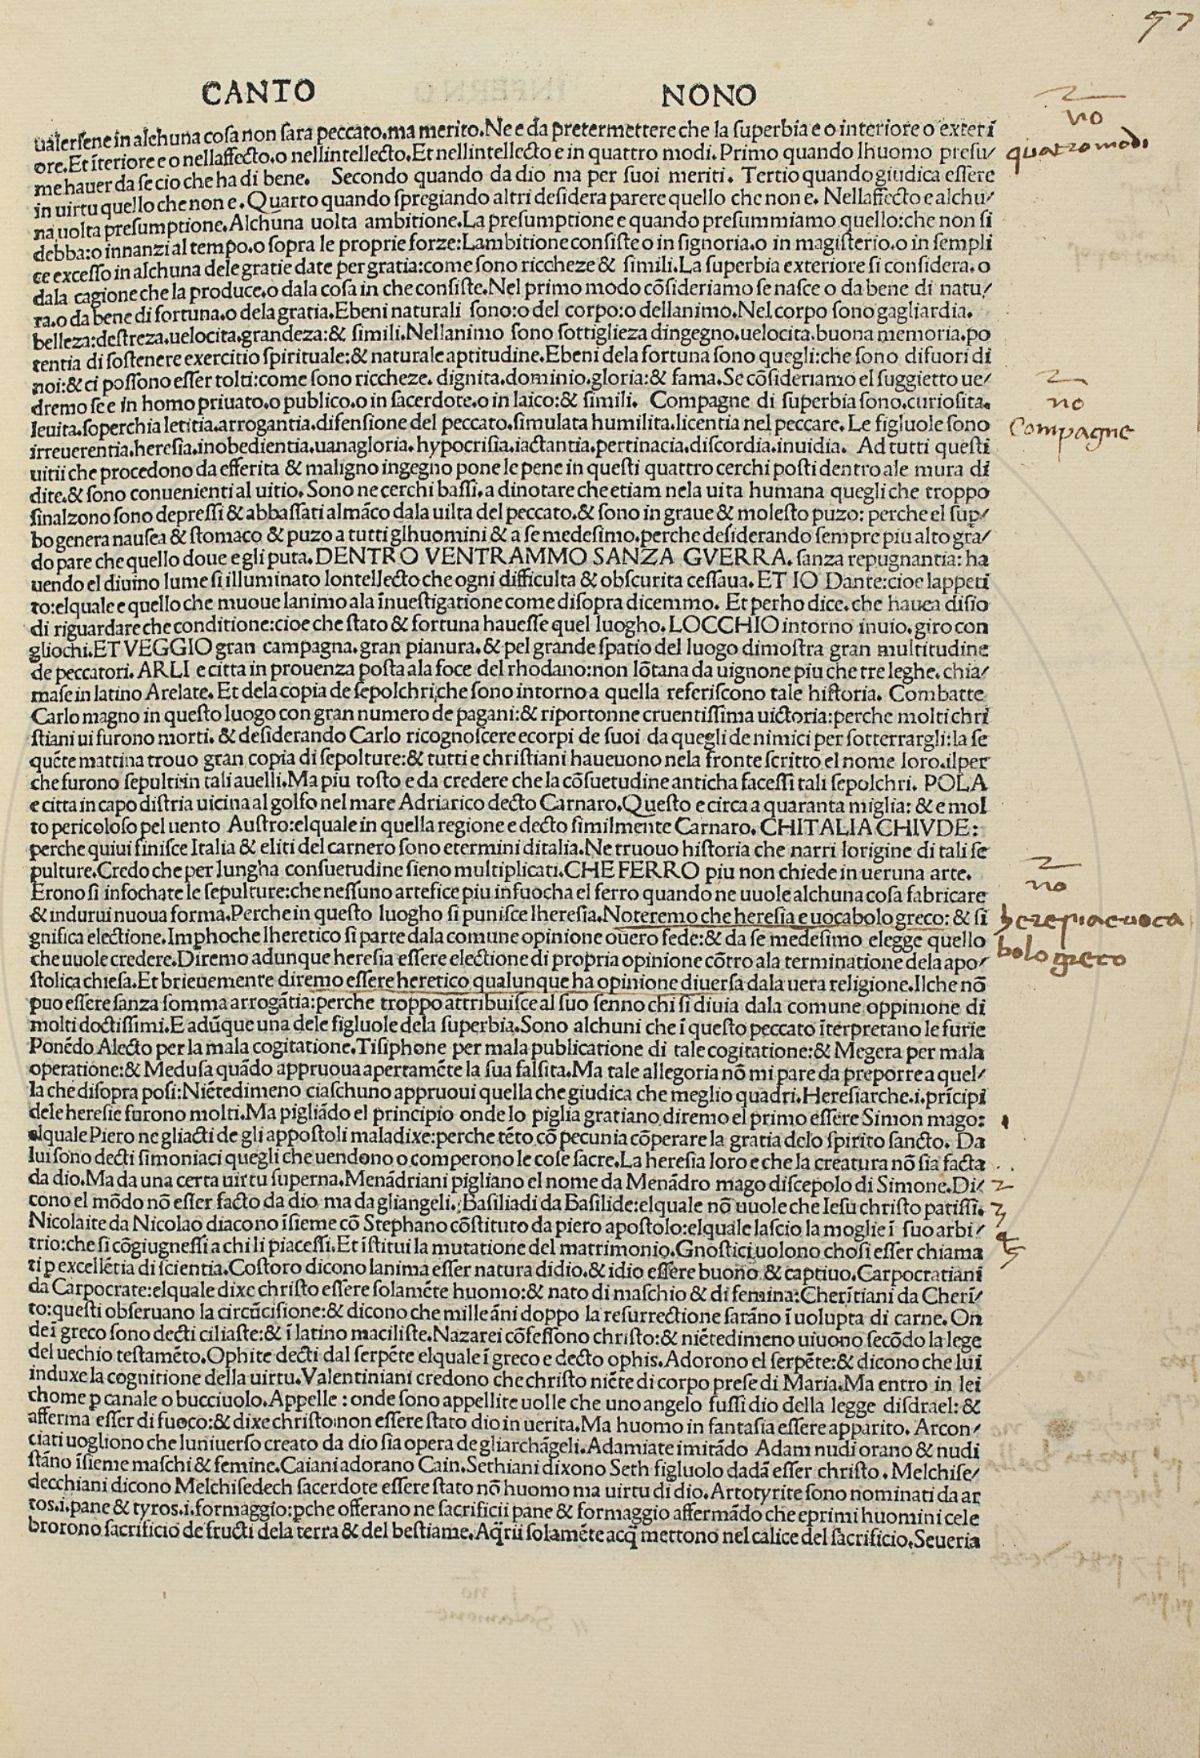 97
CANTO NONO
ualersene in alchuna cosa non sara peccato.ma merito.Ne e da pretermettere che la superbia e o interiore o exterī
ore.Et īteriore e o nellaffecto.o nellintellecto.Et nellintellecto e in quattro modi. Primo quando lhuomo presu/
me hauer da se cio che ha di bene. Secondo quando da dio ma per suoi meriti. Tertio quando giudica essere
in uirtu quello che non e. Quarto quando spregiando altri desidera parere quello che non e. Nellaffecto e alchu/
na uolta presumptione. Alchuna uolta ambitione. La presumptione e quando presummiamo quello: che non si
debba: o innanzi al tempo.o sopra le proprie forze: Lambitione consiste o in signoria.o in magisterio.o in sempli
ce excesso in alchuna dele gratie date per gratia: come sono riccheze & simili. La superbia exteriore si considera. o
dala cagione che la produce.o dala cosa in che consiste. Nel primo modo cōsideriamo se nasce o da bene di natu/
ra.o da bene di fortuna.o dela gratia. Ebeni naturali sono: o del corpo: o dellanimo. Nel corpo sono gagliardia.
belleza: destreza.uelocita.grandeza: & simili. Nellanimo sono sottiglieza dingegno.uelocita.buona memoria.po
tentia di sostenere exercitio spirituale: & naturale aptitudine. Ebeni dela fortuna sono quegli: che sono difuori di
noi: & ci possono esser tolti: come sono riccheze. dignita.dominio.gloria: & fama. Se cōsideriamo el suggietto ue/
dremo se e in homo priuato.o publico.o in sacerdote.o in laico: & simili. Compagne di superbia sono.curiosita.
leuita.soperchia letitia.arrogantia.difensione del peccato.simulata humilita.licentia nel peccare. Le figluole sono
irreuerentia.heresia.inobedientia.uanagloria.hypocrisia.iactantia.pertinacia.discordia.inuidia. Ad tutti questi
uitii che procedono da efferita & maligno ingegno pone le pene in questi quattro cerchi posti dentro ale mura di
dite.& sono conuenienti al uitio. Sono ne cerchi bassi.a dinotare che etiam nela uita humana quegli che troppo
sinalzono sono depressi & abbassati almāco dala uilta del peccato.& sono in graue & molesto puzo: perche el sup/
bo genera nausea & stomaco & puzo a tutti glhuomini & a se medesimo.perche desiderando sempre piu alto gra/
do pare che quello doue egli puta. DENTRO VENTRAMMO SANZA GVERRA. sanza repugnantia: ha
uendo el diuino lume si illuminato lontellecto che ogni difficulta & obscurita cessaua. ET IO Dante: cioe lappeti
to: elquale e quello che muoue lanimo ala īnuestigatione come disopra dicemmo. Et perho dice. che hauea disio
di riguardare che conditione: cioe che stato & fortuna hauesse quel luogho. LOCCHIO intorno inuio.giro con
gliochi. ET VEGGIO gran campagna.gran pianura.& pel grande spatio del luogo dimostra gran multitudine
de peccatori. ARLI e citta in prouenza posta ala foce del rhodano: non lōtana da uignone piu che tre leghe. chia/
mase in latino Arelate. Et dela copia de sepolchri che sono intorno a quella referiscono tale historia. Combatte
Carlo magno in questo luogo con gran numero de pagani: & riportonne cruentissima uictoria: perche molti chri
stiani ui furono morti. & desiderando Carlo ricognoscere ecorpi de suoi da quegli de nimici per sotterrargli: la se
quēte mattina trouo gran copia di sepolture: & tutti e christiani haueuono nela fronte scritto el nome loro. ilper
che furono sepulti in tali auelli. Ma piu tosto e da credere che la cōsuetudine anticha facessi tali sepolchri. POLA
e citta in capo distria uicina al golfo nel mare Adriarico decto Carnaro. Questo e circa a quaranta miglia: & e mol
to pericoloso pel uento Austro: elquale in quella regione e decto similmente Carnaro. CHITALIA CHIVDE:
perche quiui finisce Italia & eliti del carnero sono etermini ditalia. Ne truouo historia che narri lorigine di tali se
pulture. Credo che per lungha consuetudine sieno multiplicati. CHE FERRO piu non chiede in ueruna arte.
Erono si infochate le sepulture: che nessuno artefice piu infuocha el ferro quando ne uuole alchuna cosa fabricare
& indurui nuoua forma. Perche in questo luogho si punisce lheresia. Noteremo che heresia e uocabolo greco: & si
gnifica electione. Imphoche lheretico si parte dala comune opinione ouero fede: & da se medesimo elegge quello
che uuole credere. Diremo adunque heresia essere electione di propria opinione cōtro ala terminatione dela apo/
stolica chiesa. Et brieuemente diremo essere heretico qualunque ha opinione diuersa dala uera religione. Ilche nō
puo essere sanza somma arrogātia: perche troppo attribuisce al suo senno chi si diuia dala comune oppinione di
molti doctissimi. E adūque una dele figluole dela superbia. Sono alchuni che ī questo peccato īterpretano le furie
Ponēdo Alecto per la mala cogitatione. Tisiphone per mala publicatione di tale cogitatione: & Megera per mala
operatione: & Medusa quādo appruoua apertamēte la sua falsita. Ma tale allegoria nō mi pare da preporre a quel/
la che disopra posi: Niētedimeno ciaschuno appruoui quella che giudica che meglio quadri. Heresiarche.i.prīcipi
dele heresie furono molti. Ma pigliādo el principio onde lo piglia gratiano diremo el primo essere Simon mago:
elquale Piero ne gliacti de gli appostoli maladixe: perche tēto cō pecunia cōperare la gratia delo spirito sancto. Da
lui sono decti simoniaci quegli che uendono o comperono le cose sacre. La heresia loro e che la creatura nō sia facta
da dio. Ma da una certa uirtu superna. Menādriani pigliano el nome da Menādro mago discepolo di Simone. Di/
cono el mōdo nō esser facto da dio ma da gliangeli. Basiliadi da Basilide: elquale nō uuole che Iesu christo patissi.
Nicolaite da Nicolao diacono īsieme cō Stephano cōstituto da piero apostolo: elquale lascio la moglie ī suo arbi/
trio: che si cōgiugnessi a chi li piacessi. Et istitui la mutatione del matrimonio. Gnostici uolono chosi esser chiama
ti p excellētia di scientia. Costoro dicono lanima esser natura didio.& idio essere buono & captiuo. Carpocratiani
da Carpocrate: elquale dixe christo essere solamēte huomo: & nato di maschio & di femina: Cherītiani da Cherī/
to: questi obseruano la circūcisione: & dicono che mille āni doppo la resurrectione sarāno ī uolupta di carne. On
de ī greco sono decti ciliaste: & ī latino maciliste. Nazarei cōfessono christo: & niētedimeno uiuono secōdo la lege
del uechio testamēto. Ophite decti dal serpēte elquale ī greco e decto ophis. Adorono el serpēte: & dicono che lui
induxe la cognitione della uirtu. Valentiniani credono che christo niēte di corpo prese di Maria. Ma entro in lei
chome p canale o bucciuolo. Appelle: onde sono appellite uolle che uno angelo fussi dio della legge disdrael: &
afferma esser di fuoco: & dixe christo non essere stato dio in uerita. Ma huomo in fantasia essere apparito. Arcon/
ciati uogliono che luniuerso creato da dio sia opera de gliarchāgeli. Adamiate imitādo Adam nudi orano & nudi
stāno īsieme maschi & femine. Caiani adorano Cain. Sethiani dixono Seth figluolo dadā esser christo. Melchise/
decchiani dicono Melchisedech sacerdote essere stato nō huomo ma uirtu di dio. Artotyrite sono nominati da ar
tos.i.pane & tyros.i.formaggio: pche offerano ne sacrificii pane & formaggio affermādo che eprimi huomini cele
brorono sacrificio de fructi dela terra & del bestiame. Aq̄rii solamēte acq̄ mettono nel calice del sacrificio. Seueria
no
quatro modi
no
Compagne
no
heresia e uoca
bolo greco